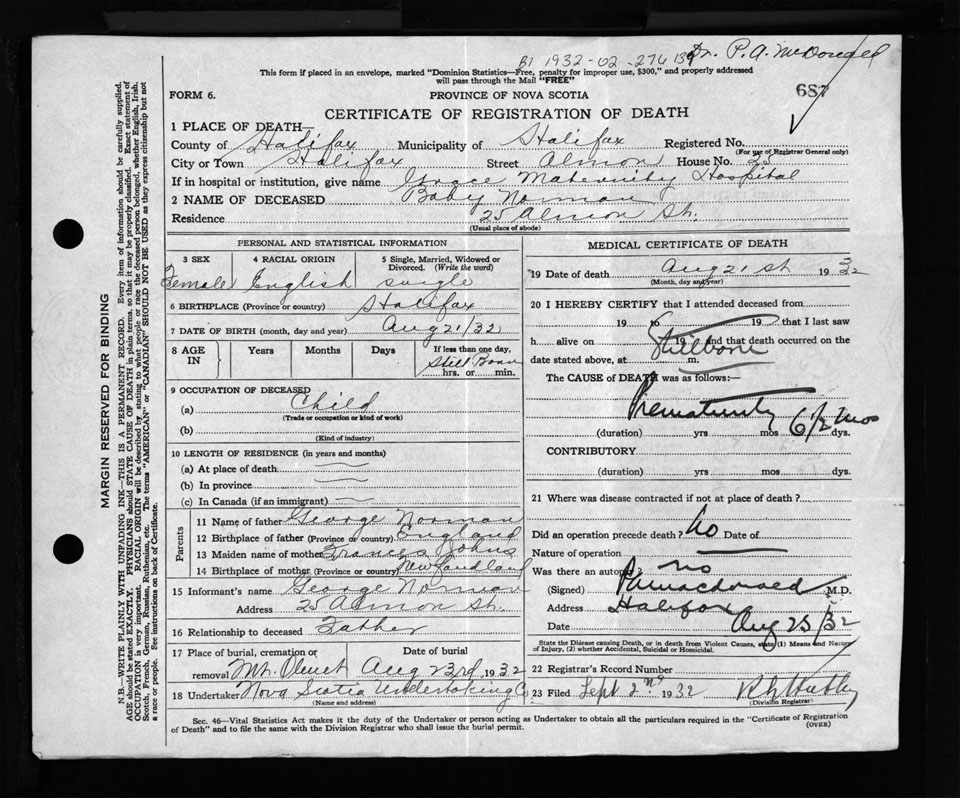 Dr. P. A. McDougall
B1 1932-02-276139
This form if placed in an envelope, marked "Dominion Statistics—Free, penalty for improper use, $300," and properly addressed
will pass through the Mail "FREE"
687
FORM 6.
PROVINCE OF NOVA SCOTIA
CERTIFICATE OF REGISTRATION OF DEATH
1 PLACE OF DEATH—
County of Halifax Municipality of Halifax Registered No.
(For use of Registrar General only)
City or Town Halifax Street Almon House No. 25
If in hospital or institution, give name Grace Maternity Hospital
2 NAME OF DECEASED Baby Norman
Residence 25 Almon St.
(Usual place of abode)
PERSONAL AND STATISTICAL INFORMATION
3 SEX 4 RACIAL ORIGIN 5 Single, Married, Widowed or Divorced. (Write the word)
Female English single
6 BIRTHPLACE (Province or country) Halifax
7 DATE OF BIRTH (month, day and year) Aug 21/32
8 AGE IN Years Months Days If less than one day,
Still Born
hrs. or min.
9 OCCUPATION OF DECEASED
(a) Child
(Trade or occupation or kind of work)
(b)
(Kind of industry)
10 LENGTH OF RESIDENCE (in years and months)
(a) At place of death
(b) In province
(c) In Canada (if an immigrant)
Parents
11 Name of father George Norman
12 Birthplace of father (Province or country) England
13 Maiden name of mother Frances Johns
14 Birthplace of mother (Province or country) Newfoundland
15 Informant's name George Norman
Address 25 Almon St.
16 Relationship to deceased Father
17 Place of burial, cremation or removal Date of burial
Mt. Olivet Aug 23rd, 1932
18 Undertaker Nova Scotia Undertaking Co
(Name and address)
MEDICAL CERTIFICATE OF DEATH
19 Date of death Aug 21st 1932
(Month, day and year)
20 I HEREBY CERTIFY that I attended deceased from
19 to 19 that I last saw
h. alive on 19 and that death occurred on the
date stated above, at m.
Stillborn
The CAUSE OF DEATH was as follows:—
Prematurity 6½ mos
(duration) yrs mos dys.
CONTRIBUTORY
(duration) yrs. mos. dys.
21 Where was disease contracted if not at place of death?
Did an operation precede death? No Date of
Nature of operation
Was there an autopsy? no
(Signed) M.D.
Address Halifax
Date Aug 25/32
State the Disease causing Death, or in death from Violent Causes, state (1) Means and Nature
of Injury, (2) whether Accidental, Suicidal or Homicidal.
22 Registrar's Record Number
23 Filed Sept 2nd 1932
(Division Registrar)
Sec. 46—Vital Statistics Act makes it the duty of the Undertaker or person acting as Undertaker to obtain all the particulars required in the "Certificate of Registration
of Death" and to file the same with the Division Registrar who shall issue the burial permit.
(OVER)
MARGIN RESERVED FOR BINDING
N.B.—WRITE PLAINLY WITH UNFADING INK—THIS IS A PERMANENT RECORD. Every item of information should be carefully supplied.
AGE should be stated EXACTLY. PHYSICIANS should STATE CAUSE OF DEATH in plain terms, so that it may be properly classified. Exact statement of
OCCUPATION is very important. RACIAL ORIGIN will be described by stating to what people or race the deceased person belonged, whether English, Irish,
Scotch, French, German, Russian, Ruthenian, etc. The terms "AMERICAN" or "CANADIAN" SHOULD NOT BE USED as they express citizenship but not
a race or people. See instructions on back of Certificate.